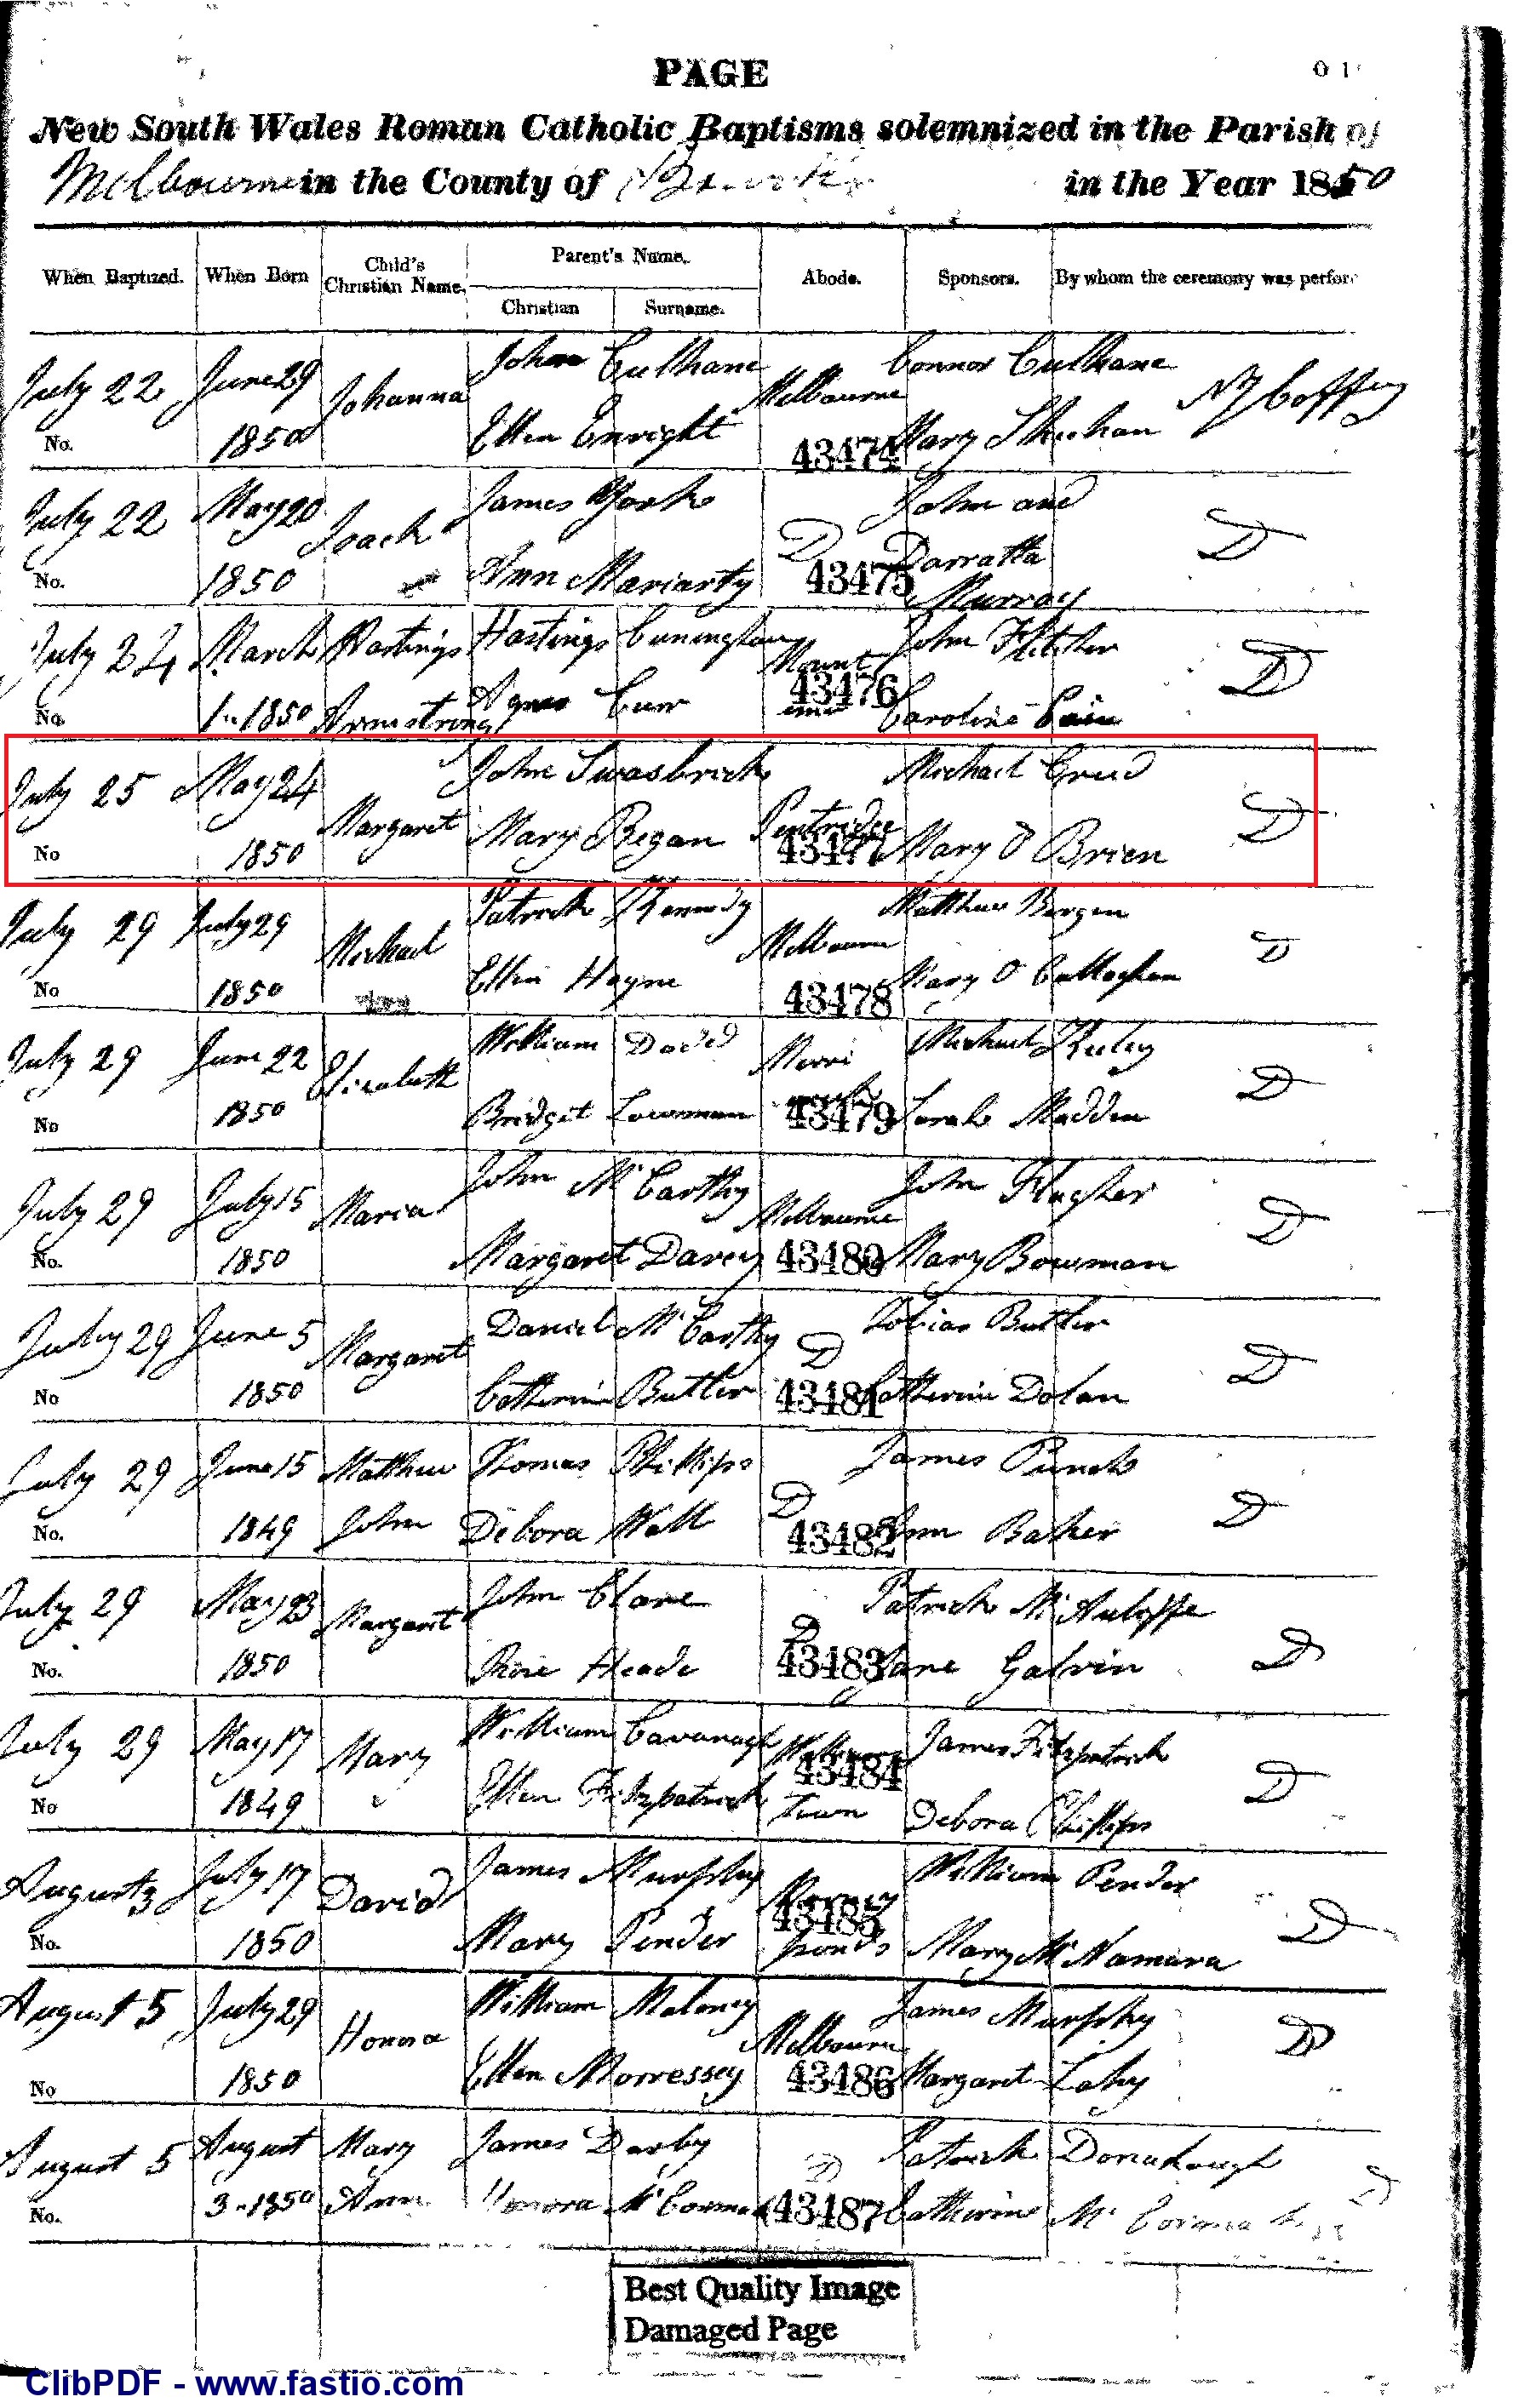 PAGE
New South Wales Roman Catholic Baptisms solemnized in the Parish of
Melbourne in the County of in the Year 1850
When Baptized. When Born Child's Christian Name. Parent's Name. Abode. Sponsors. By whom the ceremony was perfor
Christian Surname.
July 22 June 29 Johanna John Culhane Melbourne Connor Culhane
No. 1850 Ellen Enright 43474 Mary Sheehan
July 22 May 20 James York D John and D
No. 1850 Ann Mariarty 43475 Darratta
Murray
July 24 March Hastings Hastings Cuningham Mount John Fletcher D
No. 1 1850 Armstrong Agnes 43476 Caroline
July 25 May 24 Margaret John Swasbrick Pentridge Michael D
No 1850 Mary Regan 43477 Mary O Brien
July 29 July 29 Michael Patrick Kennedy Melbourne Matthew D
No 1850 Ellen Hayne 43478 Mary O Callaghan
July 29 June 22 Elizabeth William Merri Michael D
No 1850 Bridget 43479 Sarah Madden
July 29 July 15 Maria John McCarthy Melbourne John D
No. 1850 Margaret Darcy 43480 Mary Bowman
July 29 June 5 Margaret Daniel McCarthy D Tobias Butler D
No 1850 Catherine Butler 43481 Catherine Dolan
July 29 June 15 Matthew Thomas Phillips D James Punch D
No. 1849 John Debora Wall 43482 Ann Baker
July 29 May 23 Margaret John Clare D Patrick McAuliffe D
No. 1850 Rose Heade 43483 Jane Galvin
July 29 May 17 Mary William Cavanagh James Fitzpatrick D
No 1849 Ellen Fitzpatrick 43484 Town Debora Phillips
August 3 July 17 David James Murphy William Pender D
No. 1850 Mary Pender 43485 ponds Mary McNamara
August 5 July 29 Honora William Maloney Melbourne James Murphy D
No 1850 Ellen Morressey 43486 Margaret Lahy
August 5 August Mary James Darby D Patrick Donahough D
No. 3 1850 Ann Honora McCormack 43487 Catherine McCormack
Best Quality Image
Damaged Page
ClibPDF - www.fastio.com